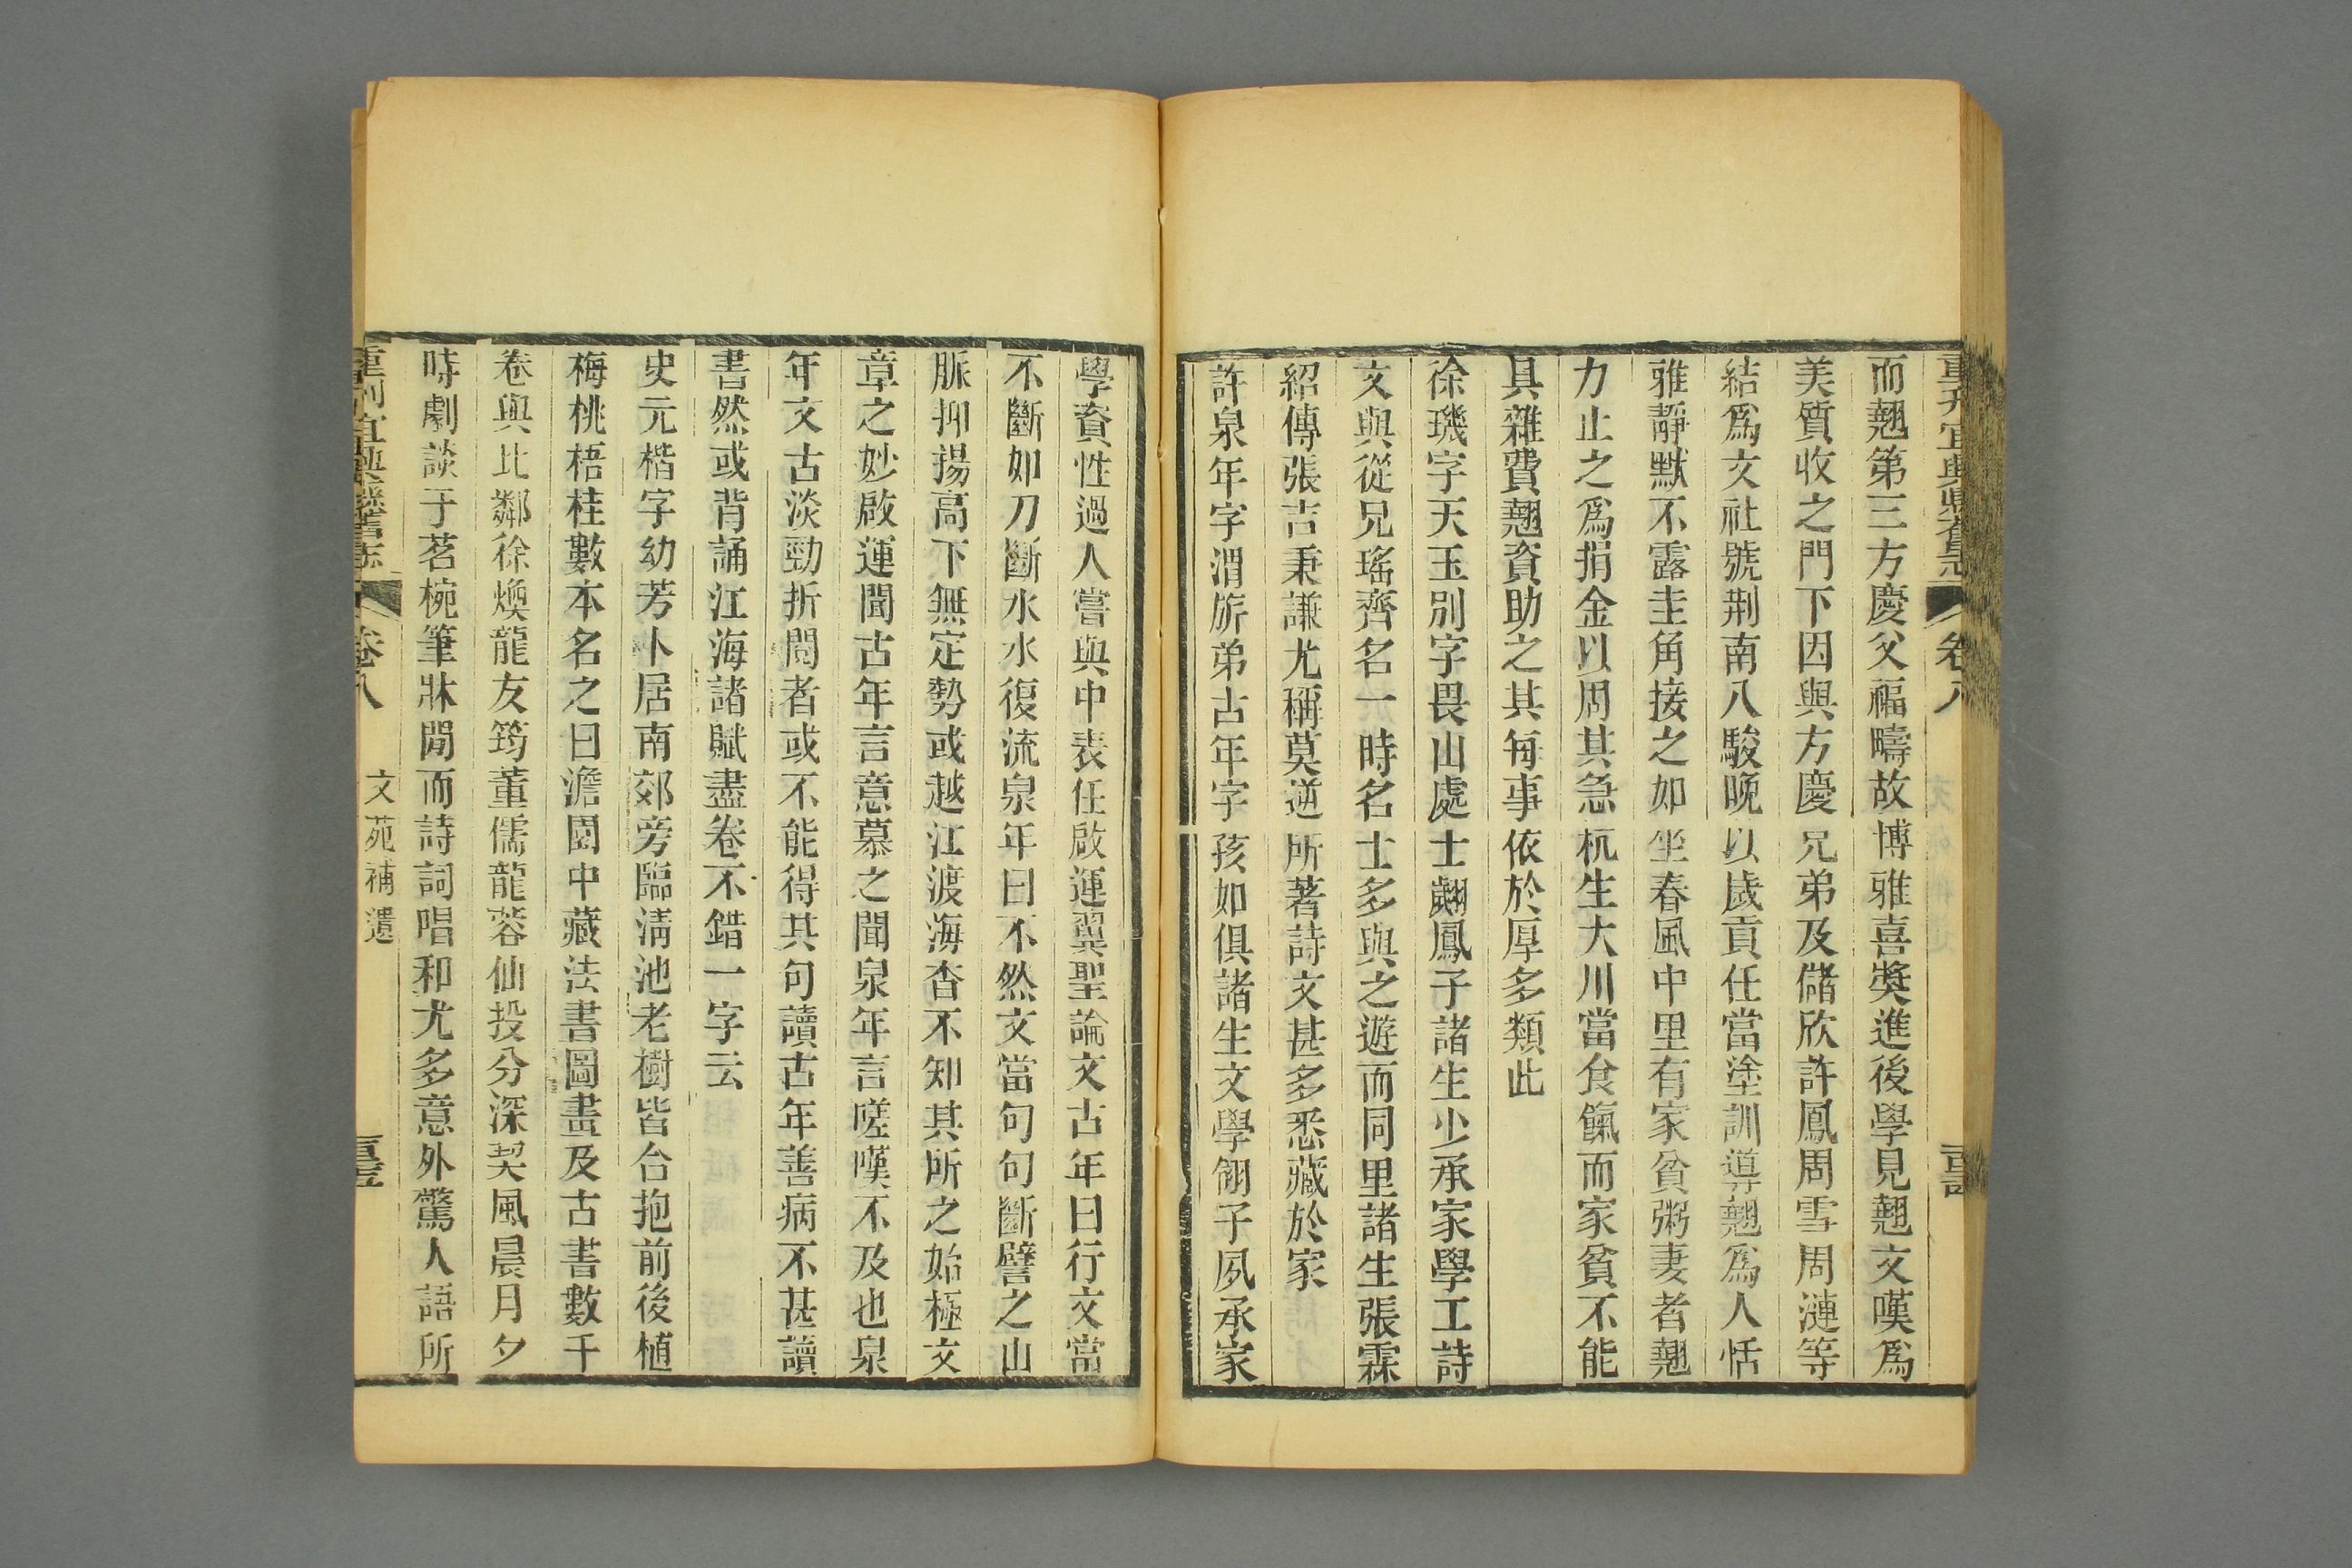 重刊宜興縣舊志 卷八
而翹第三方慶父福疇故博雅喜奬進後學見翹文嘆爲
美質收之門下因與方慶兄弟及儲欣許鳳周雪周漣等
結爲文社號荆南八駿晚以歲貢任當塗訓導翹爲人恬
雅靜默不露圭角接之如坐春風中里有家貧粥妻者翹
力止之爲捐金以周其急杭生大川當食餼而家貧不能
具雜費翹資助之其每事依於厚多類此
徐璣字天玉別字畏山處士翽鳳子諸生少承家學工詩
文與從兄瑤齊名一時名士多與之遊而同里諸生張霖
紹傳張吉秉謙尤稱莫逆所著詩文甚多悉藏於家
許泉年字渭旂弟古年字孩如俱諸生文學翎子夙承家
學資性過人嘗與中表任啟運翼聖論文古年曰行文當
不斷如刀斷水水復流泉年曰不然文當句句斷譬之山
脈抑揚高下無定勢或越江渡海杳不知其所之始極文
章之妙啟運聞古年言意慕之聞泉年言嗟嘆不及也泉
年文古淡勁折閱者或不能得其句讀古年善病不甚讀
書然或背誦江海諸賦盡卷不錯一字云
史元楷字幼芳卜居南郊旁臨淸池老樹皆合抱前後植
梅桃梧桂數本名之曰澹園中藏法書圖畫及古書數千
卷與比鄰徐煥龍友筠董儒龍蓉仙投分深契風晨月夕
時劇談于茗椀筆牀閒而詩詞唱和尤多意外驚人語所
重刊宜興縣舊志 卷八 文苑補遺